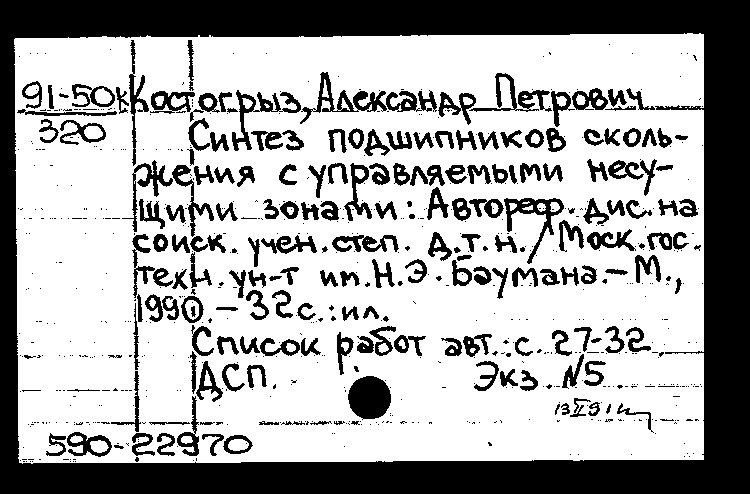 91-50к Костогрыз, Александр Петрович
320 Синтез подшипников сколь-
жения с управляемыми несу-
щими зонами: Автореф. дис. на
соиск. учен. степ. д.т.н. / Моск. гос.
техн. ун-т им. Н.Э. Баумана. – М.,
1990. – 32 с.: ил.
Список работ авт.: с. 27-32.
ДСП. Экз. №5.
590-22970